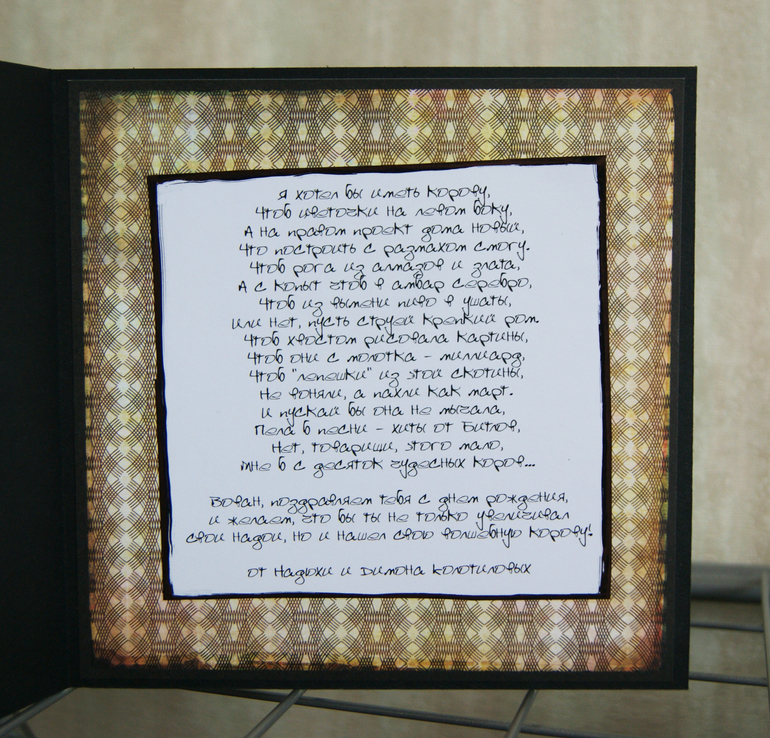 Я хотел бы иметь корову,
Чтоб цветочки на левом боку,
А на правом проект дома новый,
Что построить с размахом смогу.
Чтоб рога из алмазов и злата,
А с копыт чтоб в амбар серебро,
Чтоб из вымени пиво в ушаты,
Или нет, пусть струёй крепкий ром.
Чтоб хвостом рисовала картины,
Чтоб они с молотка - миллиард,
Чтоб "лепешки" из этой скотины,
Не воняли, а пахли как март.
И пускай бы она не мычала,
Пела б песни - хиты от Битлов,
Нет, товарищи, этого мало,
Мне б с десяток чудесных коров...
Вован, поздравляем тебя с днем рождения,
и желаем, что бы ты не только увеличивал
свои надои, но и нашел свою волшебную корову!
от Надюхи и Димона Колотиловых